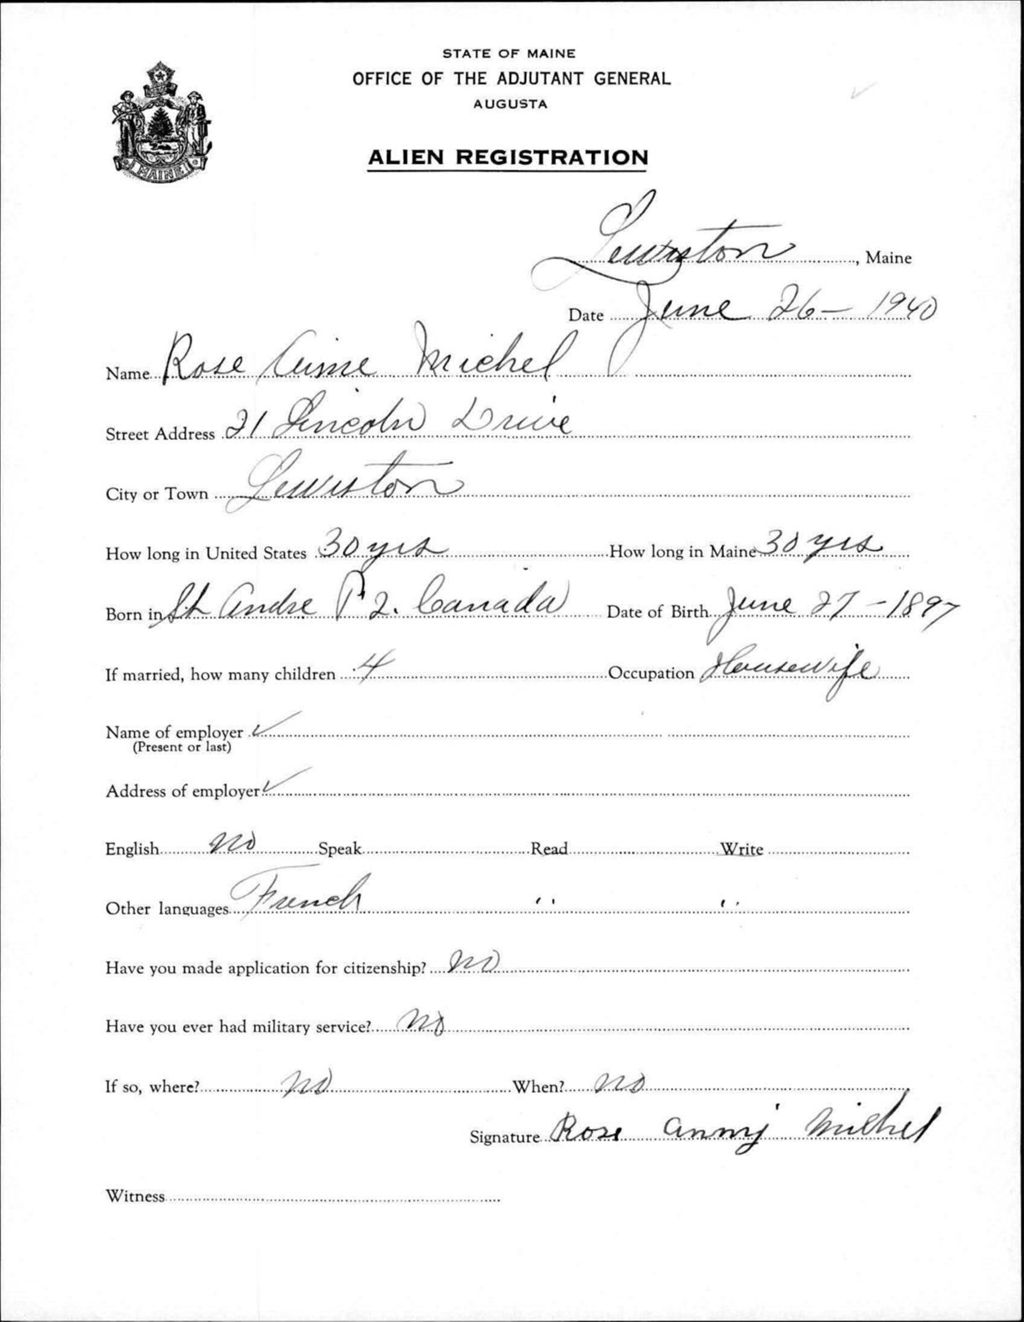 STATE OF MAINE
OFFICE OF THE ADJUTANT GENERAL
AUGUSTA
ALIEN REGISTRATION
MAINE
Lewiston, Maine
Date June 26 - 1940
Name Rose Aime Michel
Street Address 21 Lincoln Drive
City or Town Lewiston
How long in United States 30 yrs How long in Maine 30 yrs
Born in St Andre P2. Canada Date of Birth June 27 - 1897
If married, how many children 4 Occupation Housewife
Name of employer ✓
(Present or last)
Address of employer ✓
English no Speak Read Write
Other languages French " "
Have you made application for citizenship? no
Have you ever had military service? no
If so, where? no When? no
Signature Rose Michel
Witness